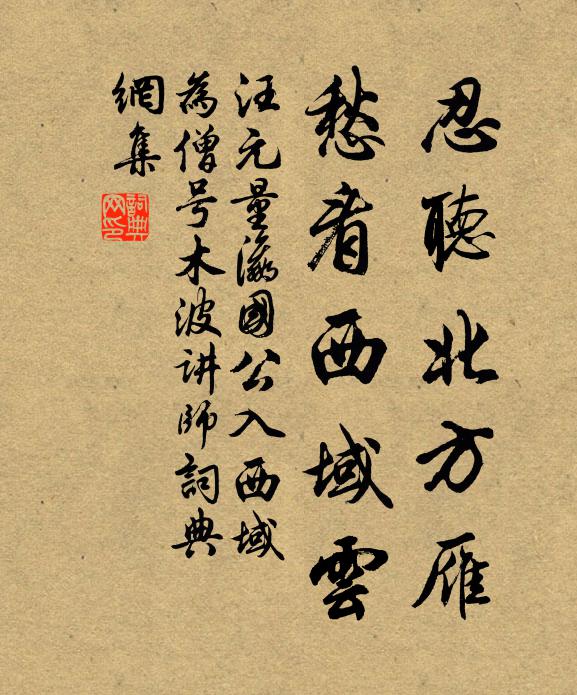 忍聽北方雁
愁看西域雲
汪元量瀛國公入西域
為僧号木波讲師詞典
網集
詞典網印